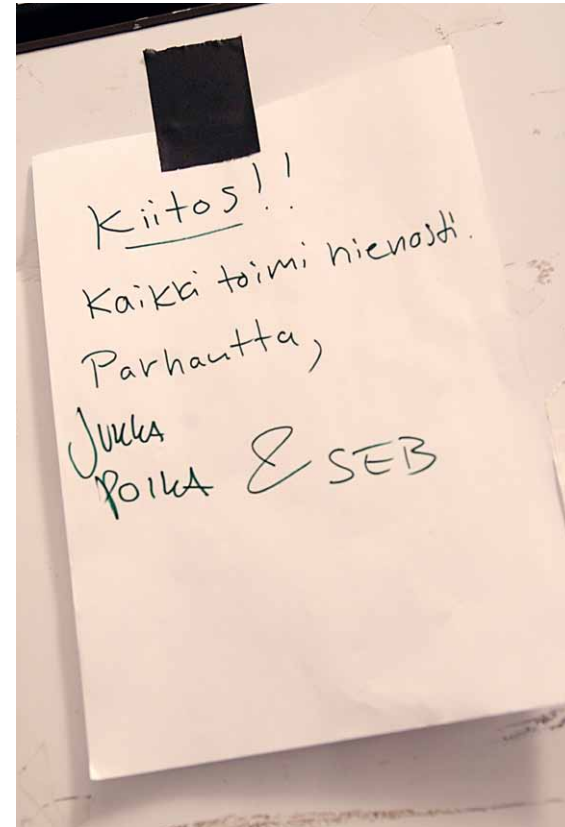 Kiitos!!
Kaikki toimi hienosti.
Parhautta,
JUKKA
POIKA & SEB